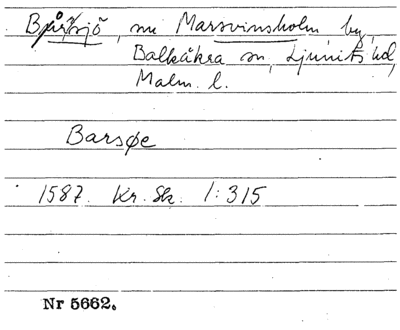 Bårsjö, nu Marsvinsholm by,
Balkåkra sn, Ljunits hd,
Malm. l.
Barsøe
1587. Kr. Sk. 1:315
Nr 5662.